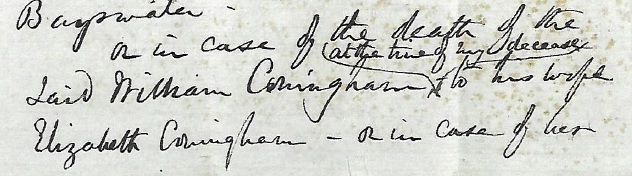 Bayswater -
or in case of the death of the
(at the time of my decease)
said William Coningham to his wife
Elizabeth Coningham - or in case of her